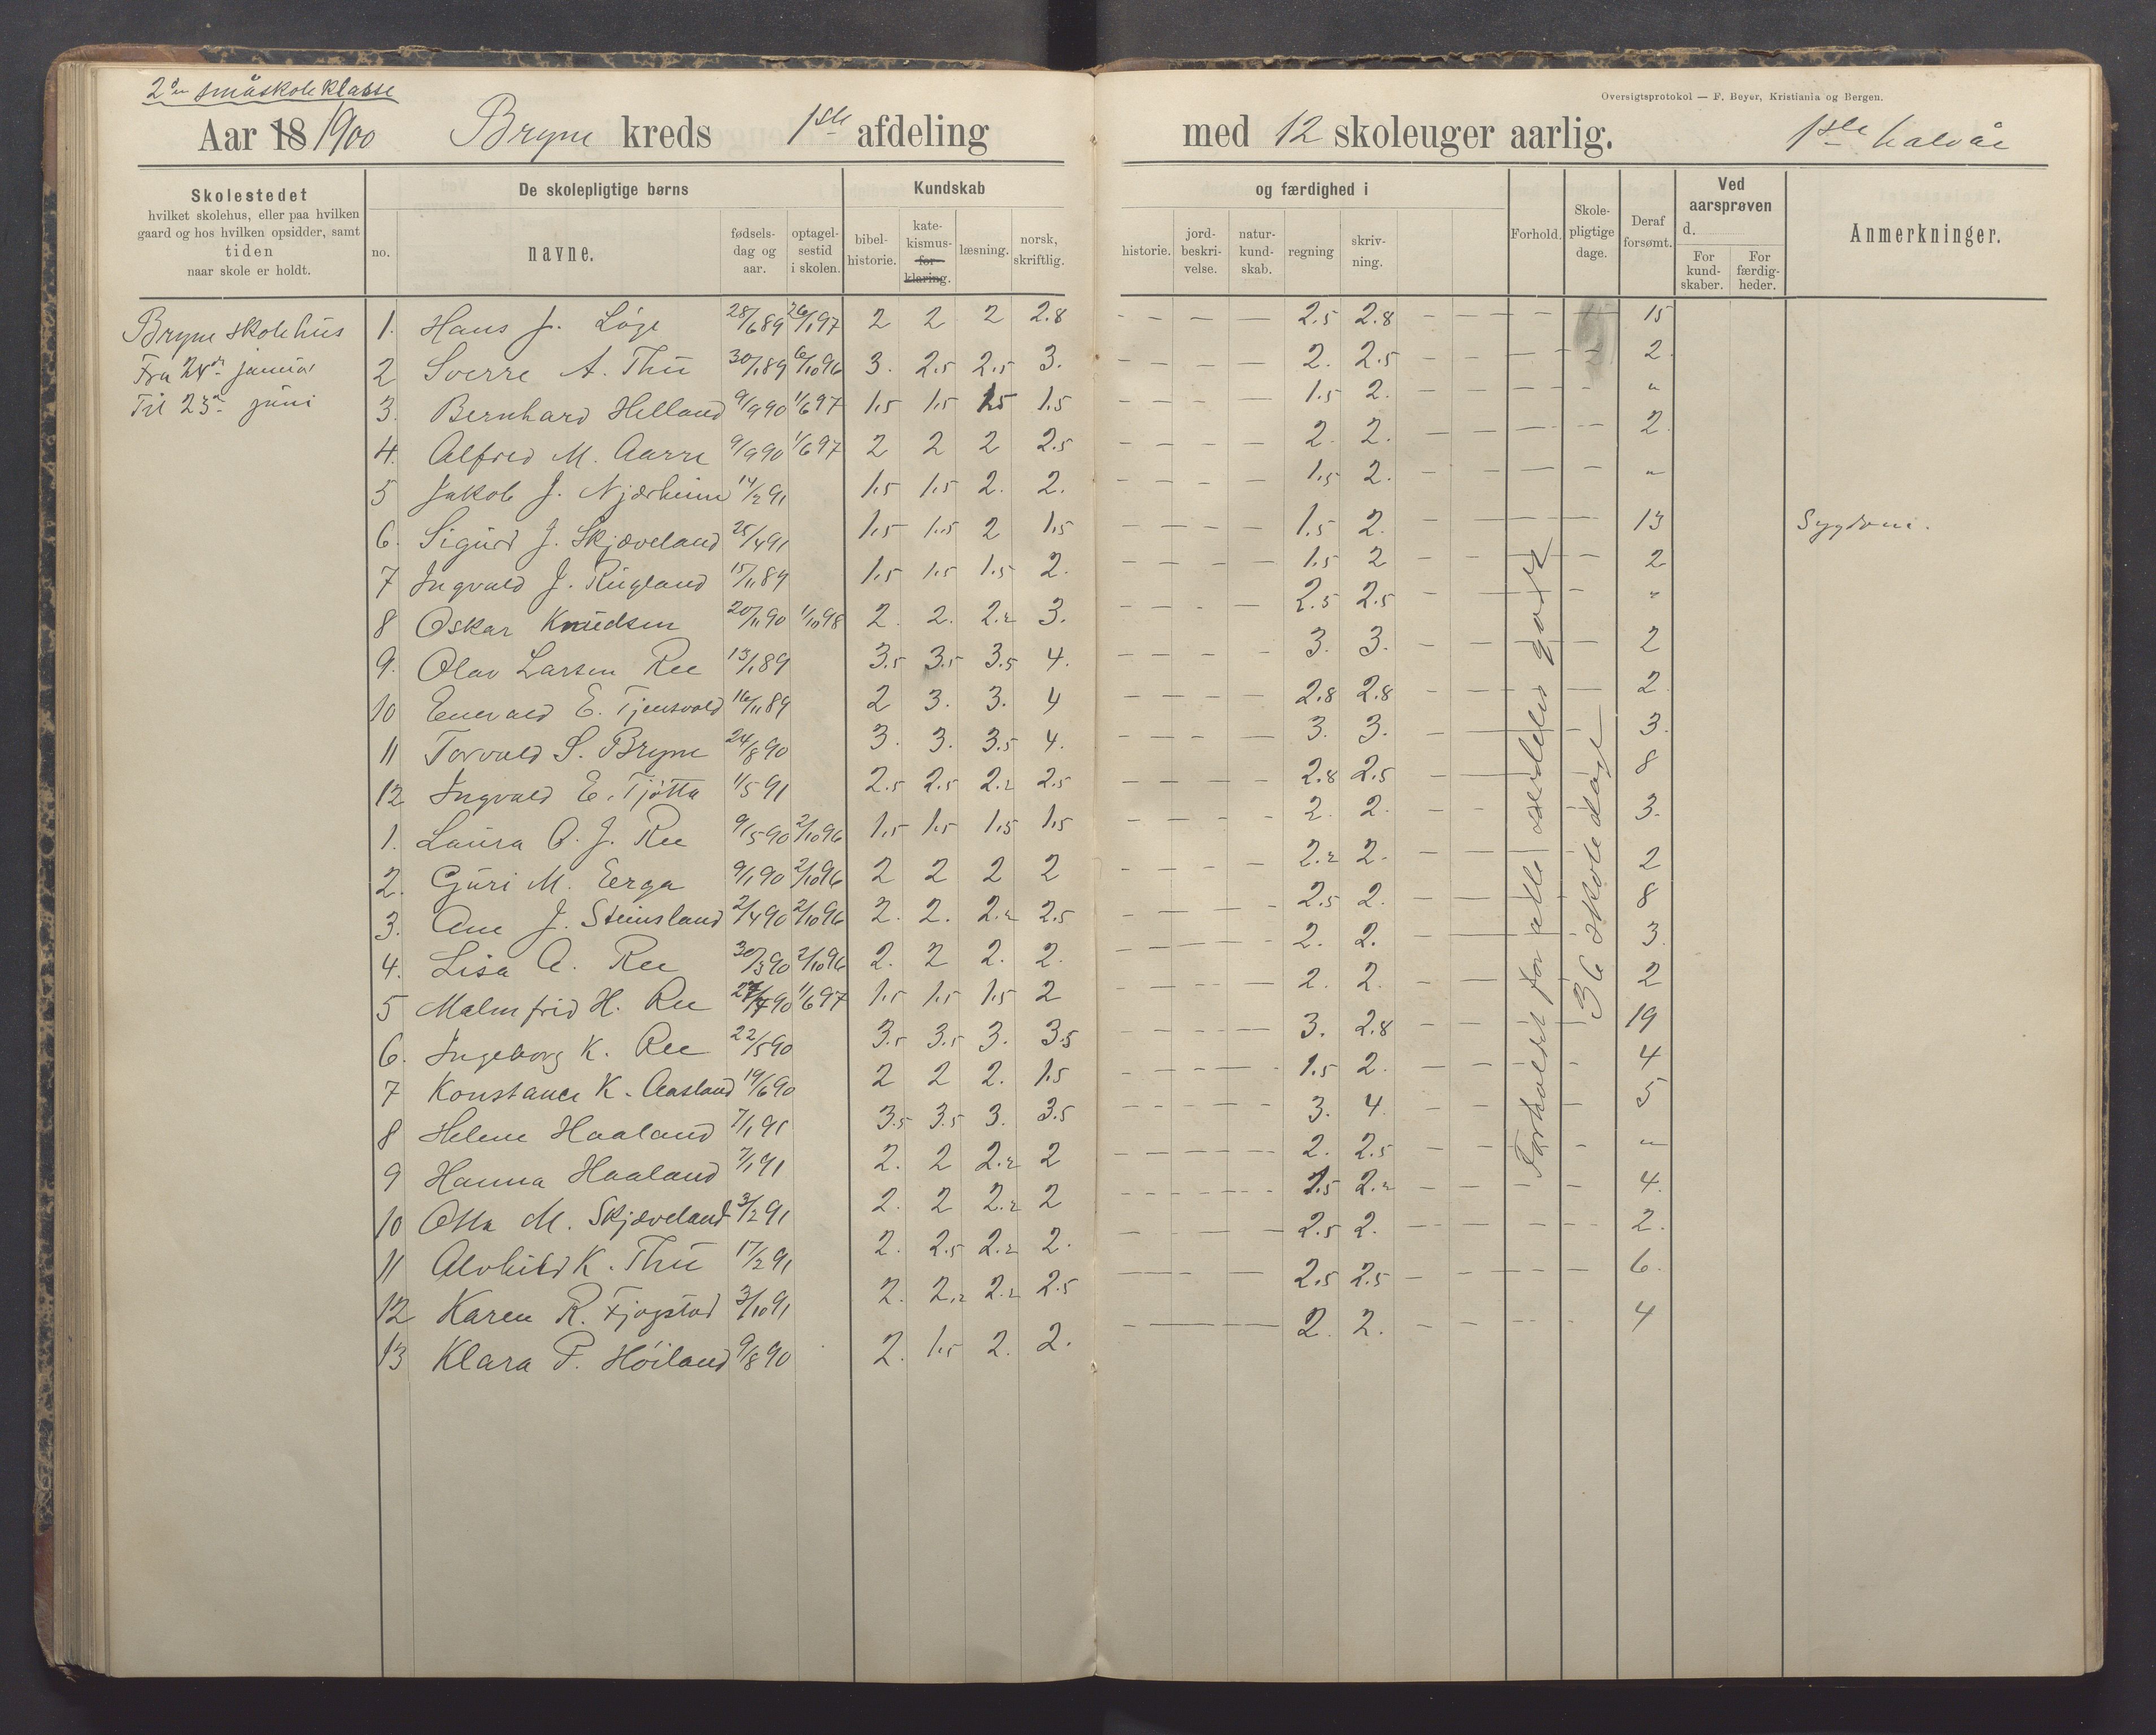 2den småskoleklasse
Oversigtsprotokol — F. Beyer, Kristiania og Bergen.
Aar 18 1900 Bryne kreds 1ste afdeling med 12 skoleuger aarlig. 1ste halvår
Skolestedet hvilket skolehus, eller paa hvilken gaard og hos hvilken opsidder, samt tiden naar skole er holdt.
De skolepligtige børns
no. navne. fødsels-dag og aar. optagel-sestid i skolen.
Kundskab og færdighed i
bibel-historie. kate-kismus-for-klaring. læsning. norsk, skriftlig. historie. jord-beskri-velse. natur-kund-skab. regning skriv-ning.
Forhold. Skole-pligtige dage. Deraf forsømt.
Ved aarsprøven d.
For kund-skaber. For færdig-heder.
Anmerkninger.
Bryne skolehus
Fra 24de januar
Til 23de juni
1. Hans J. Løge 28/6 89 26/1 97 2 2 2 2.8 - - - - 2.5 2.8 - - - 15
2 Sverre A. Thu 30/1 89 6/10 96 3. 2.5 2.5 3. - - - - 2. 2.5 - - - - 2.
3. Bernhard Helland 9/9 90 1/6 97 1.5 1.5 1.5 1.5 - - - - 1.5 2. - - - - "
4. Alfred M. Aarre 9/9 90 1/6 97 2 2 2 2.5 - - - - 2. 2. - - - - 2.
5 Jakob J. Njærheim 14/2 91 1.5 1.5 2. 2. - - - - 1.5 2. - - - - "
6. Sigurd J. Skjæveland 25/4 91 1.5 1.5 2 1.5 - - - - 1.5 2. - - - - 13 Sygdom.
7 Ingvald J. Rugland 15/11 89 1.5 1.5 1.5 2. - - - - 1.5 2 - - - - 2
8 Oskar Knudsen 20/11 90 1/10 98 2. 2. 2.2 3. - - - - 2.5 2.5 - - - "
9. Olav Larsen Ree 13/1 89 3.5 3.5 3.5 4. - - - - 3. 3. - - - 2
10 Enevald E. Tjensvold 16/11 89 2 3. 3. 4 - - - - 2.8 2.8 - - - 2.
11 Torvald S. Bryne 24/8 90 3. 3. 3.5 4. - - - - 3. 3. - - - 3.
12 Ingvald E. Tjøtta 1/5 91 2.5 2.5 2.2 2.5 - - - - 2.8 2.5 - - 8
1. Laura O. J. Ree 9/5 90 2/10 96 1.5 1.5 1.5 1.5 - - - - 2. 2. - - 3.
2. Guri M. Eerga 9/1 90 2/10 96 2 2 2 2 - - - - 2.2 2. - - - 2
3. Ane J. Steinsland 2/4 90 2/10 96 2. 2. 2.2 2.5 - - - - 2.5 2. - - 8
4. Lisa A. Ree 30/3 90 2/10 96 2. 2 2. 2. - - - - 2. 2. - - 3.
5 Malmfrid H. Ree 27/4 90 1/6 97 1.5 1.5 1.5 2 - - - - 2. 2. - - 2
6. Ingeborg K. Ree 22/5 90 3.5 3.5 3. 3.5 - - - - 3. 2.8 - - - 19
7 Konstance K. Aasland 19/6 90 2 2 2. 1.5 - - - - 1.5 2. - - - 4
8 Helene Haaland 7/1 91 3.5 3.5 3. 3.5 - - - - 3. 4. - - - 5
9 Hanna Haaland 7/1 91 2. 2 2.2 2 - - - - 2. 2.5 - - - "
10 Otta M. Skjæveland 3/2 91 2. 2 2.2 2 - - - - 1.5 2.2 - - - - 4.
11 Alvhild K. Thu 17/2 91 2. 2.5 2.2 2. - - - - 2.5 2. - - - - 2.
12 Karen R. Fjogstad 3/10 91 2. 2.2 2.2 2.5 - - - - 2.5 2.5 - - - - 6.
13 Klara P. Høiland 9/8 90 2. 1.5 2. 2. - - - - 2. 2. - - - - 4
Forholdet for alle særdeles godt
36 skoledage